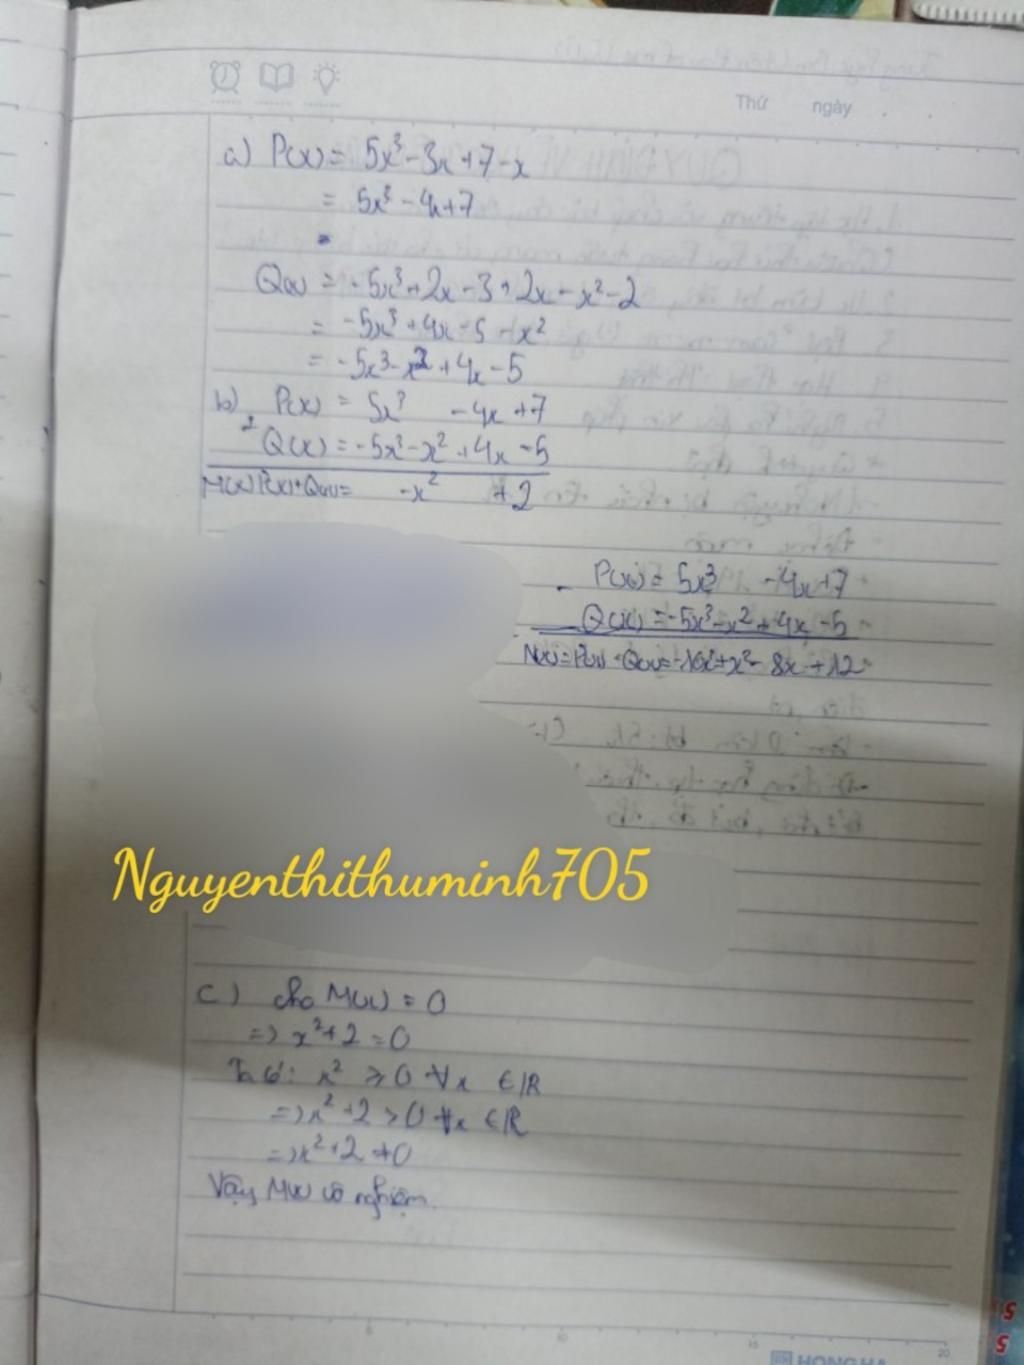 Thứ ngày
a) P(x) = 5x³ - 3x + 7 - x
= 5x³ - 4x + 7
Q(x) = -5x³ + 2x - 3 + 2x - x² - 2
= -5x³ + 4x - 5 - x²
= -5x³ - x² + 4x - 5
b) P(x) = 5x³ - 4x + 7
+ Q(x) = -5x³ - x² + 4x - 5
M(x) P(x) + Q(x) = -x² + 2
- P(x) = 5x³ - 4x + 7
Q(x) = -5x³ - x² + 4x - 5
N(x) = P(x) - Q(x) = -10x³ + x² - 8x + 12
Nguyenthithuminh705
c) cho M(x) = 0
=> x² + 2 = 0
Ta có: x² ≥ 0 ∀x ∈ R
=> x² + 2 > 0 ∀x ∈ R
=> x² + 2 ≠ 0
Vậy M(x) vô nghiệm.
5 10 15 20
HONG HA